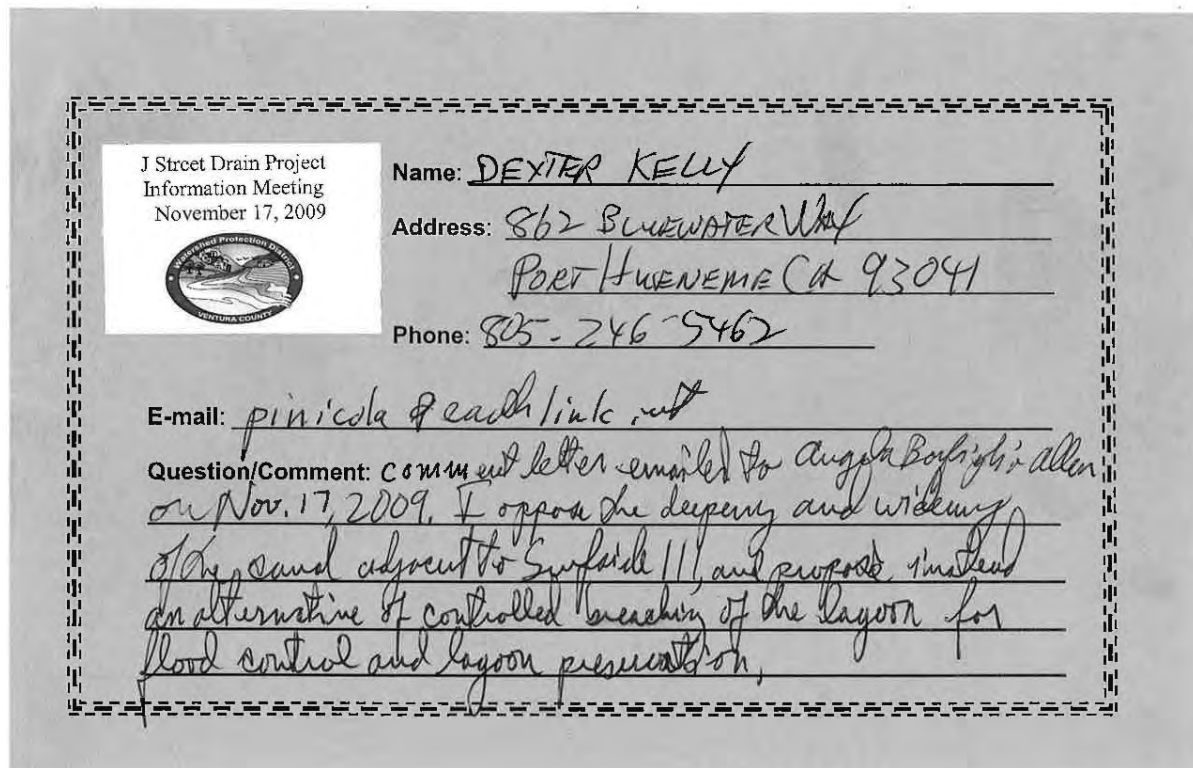 J Street Drain Project
Information Meeting
November 17, 2009
Watershed Protection District
VENTURA COUNTY
Name: DEXTER KELLY
Address: 862 BLUEWATER WAY
PORT HUENEME CA 93041
Phone: 805-246-5462
E-mail: pinicola@earthlink.net
Question/Comment: comment letter emailed to Angela allen
on Nov. 17, 2009. I oppose the deepening and widening
of the canal adjacent to Surfside III, and propose instead
an alternative of controlled breaching of the lagoon for
flood control and lagoon preservation.